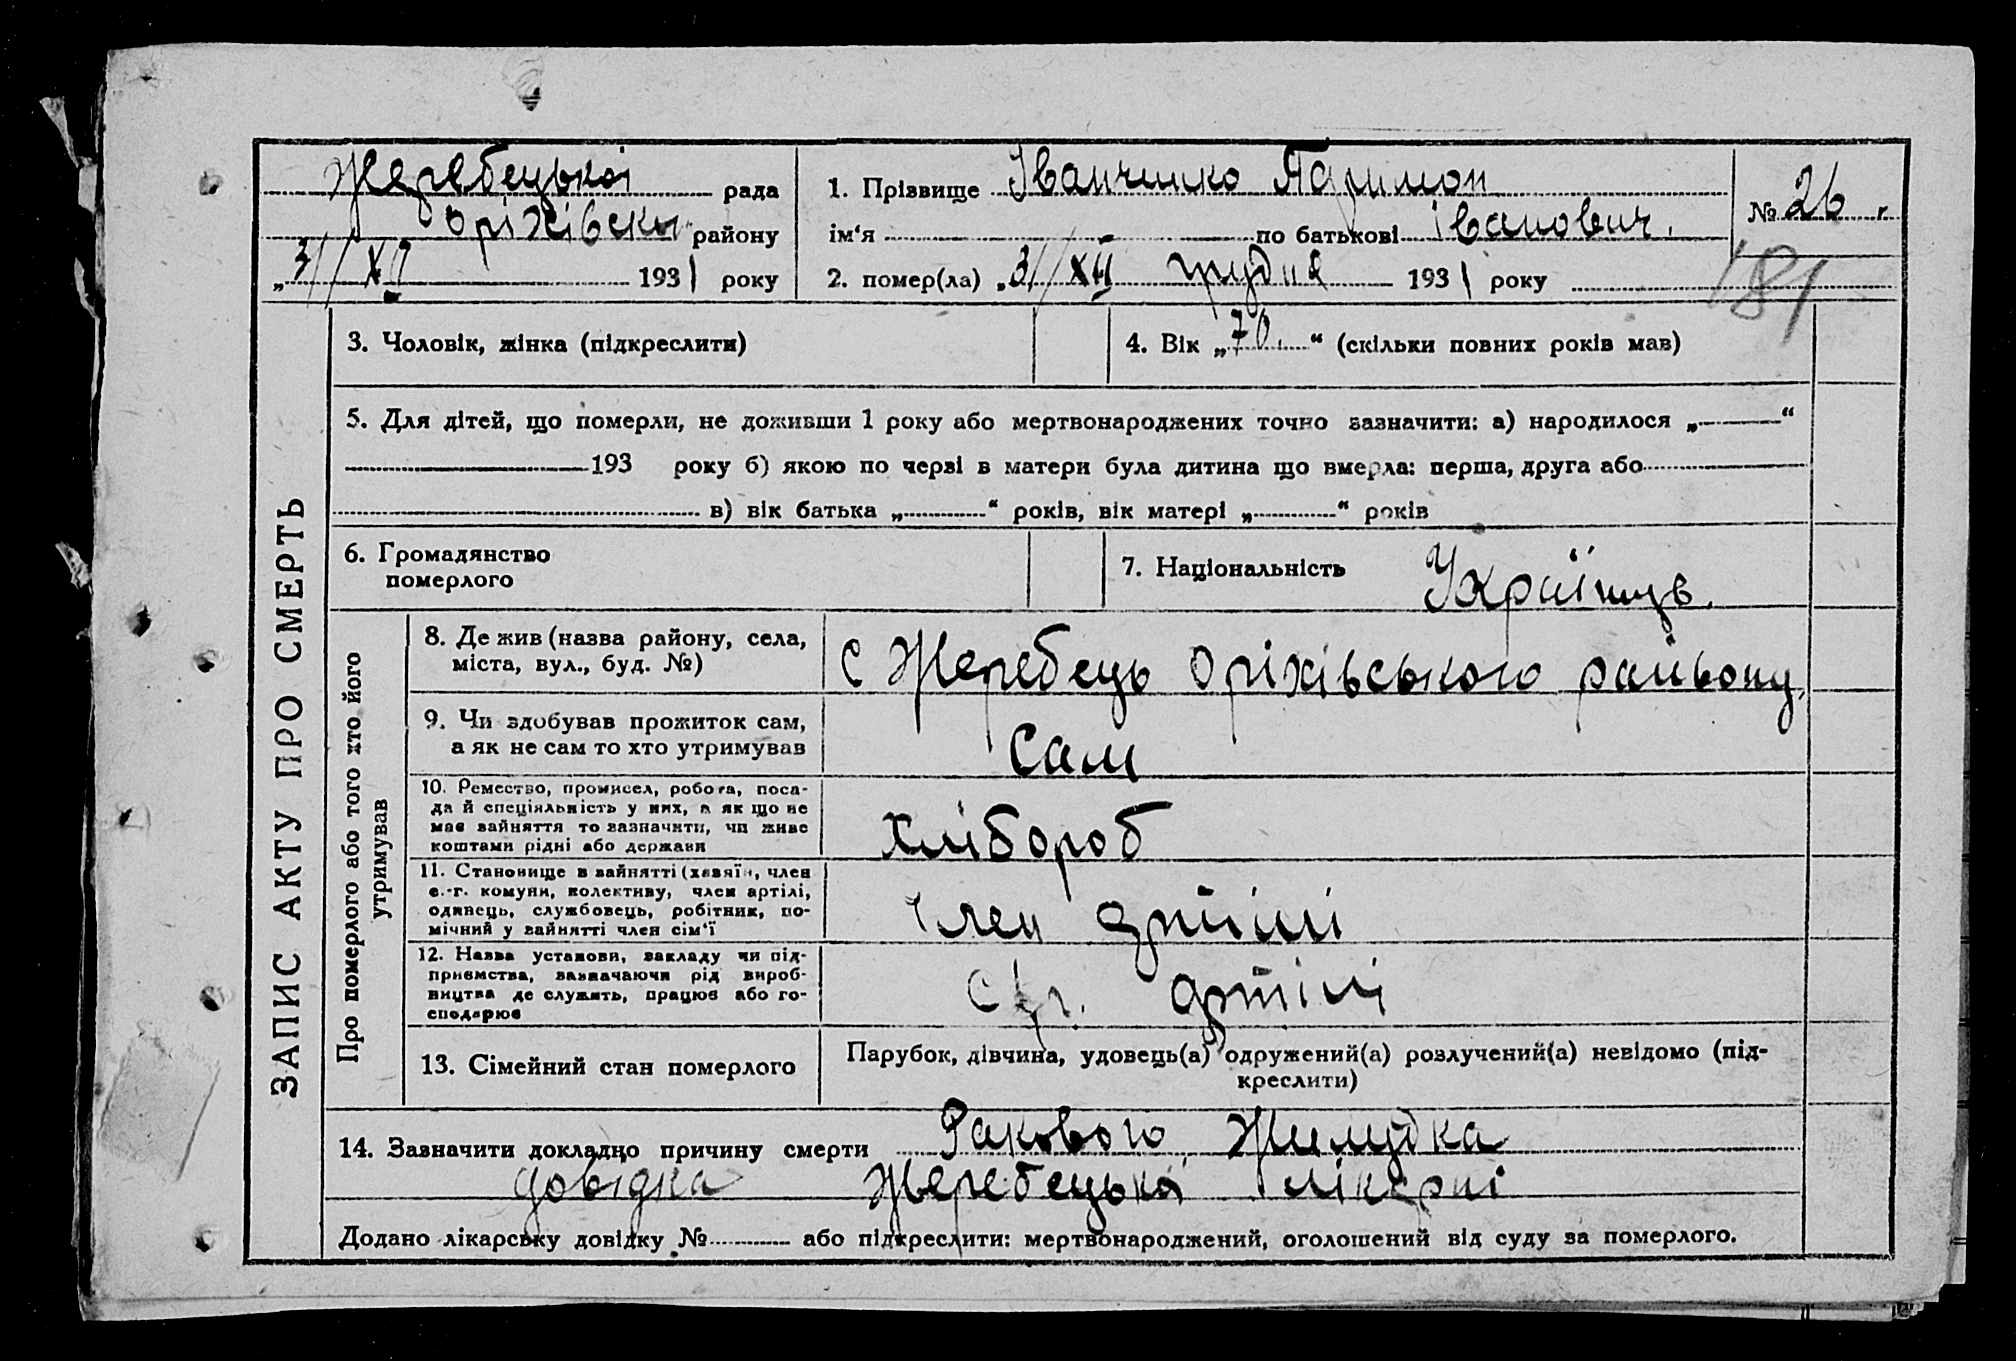 Жеребецької рада
Оріхівськ району
„31/XII 1931 року
1. Прізвище Іванченко Паримон
ім‘я по батькові Іванович.
2. помер(ла) „31/XII грудня 1931 року
№ 26.
181
ЗАПИС АКТУ ПРО СМЕРТЬ
3. Чоловік, жінка (підкреслити)
4. Вік „70.“ (скільки повних років мав)
5. Для дітей, що померли, не доживши 1 року або мертвонароджених точно зазначити: а) народилося „ “
193 року б) якою по черзі в матери була дитина що вмерла: перша, друга або
в) вік батька „ “ років, вік матері „ “ років
6. Громадянство
померлого
7. Національність Українць.
Про померлого або того хто його
утримував
8. Де жив (назва району, села,
міста, вул., буд. №)
с Жеребець Оріхівського району,
9. Чи здобував прожиток сам,
а як не сам то хто утримував
Сам
10. Ремество, промисел, робота, поса-
да й спеціяльність у них, а як що не
має зайняття то зазначити, чи живе
коштами рідні або держави
Хлібороб
11. Становище в зайнятті (хазяїн, член
с.-г. комуни, колективу, член артілі,
одинець, службовець, робітник, по-
мічний у зайнятті член сім‘ї
Член артілі
12. Назва установи, закладу чи під-
приємства, зазначаючи рід вироб-
ництва де служить, працює або го-
сподарює
С/г. артілі
13. Сімейний стан померлого
Парубок, дівчина, удовець(а) одружений(а) розлучений(а) невідомо (під-
креслити)
14. Зазначити докладно причину смерти Ракового Жилудка
довідка Жеребецької лікарні
Додано лікарську довідку № або підкреслити: мертвонароджений, оголошений від суду за померлого.